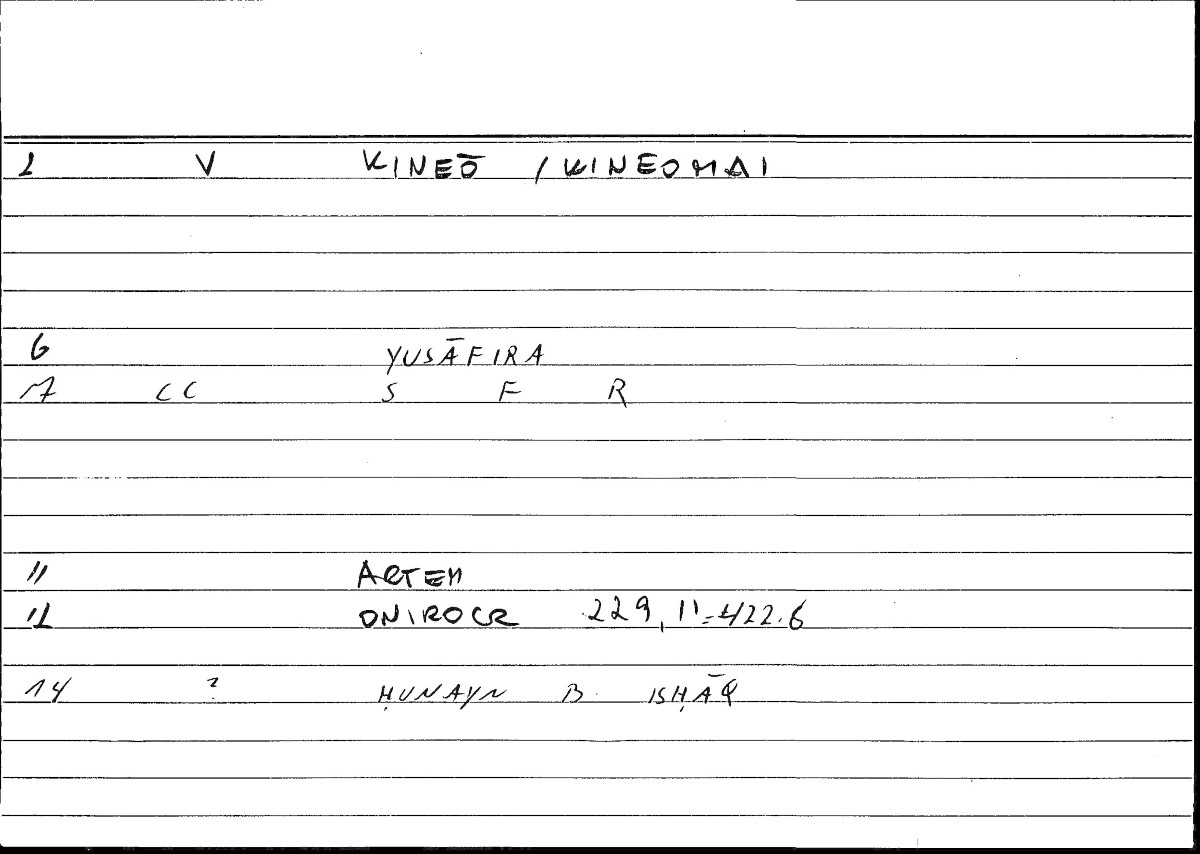 1 V KINEŌ / KINEOMAI
6 YUSĀFIRA
7 CC S F R
11 ARTEM
12 ONIROCR 229,11=422.6
14 ? ḤUNAYN B. ISḤĀQ